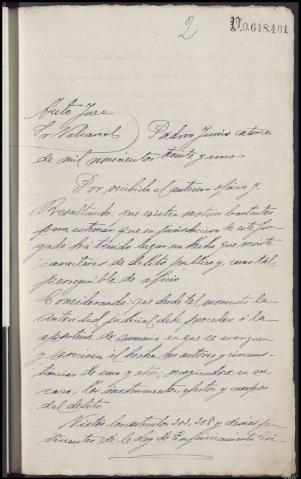 2
V.0.648.401
Auto Juez
Sr Valcarcel
Padron Junio catorce
de mil novecientos treinta y uno
Por recibido el anterior oficio y
Resultando: que existen motivos bastantes
para estimar que en jurisdiccion de este Juz-
gado ha tenido lugar un hecho que reviste
caracteres de delito publico y como tal
perseguible de oficio
Considerando: que desde tal momento la
autoridad judicial debe proceder á la
apertura de sumario en que se averiguen
y precisen el hecho, los autores y circuns-
tancias de unos y otro, recogiendo en su
caso, los instrumentos, efectos y cuerpos
del delito
Vistos los articulos 303, 308 y demas per-
tinentes de la Ley de Enjuiciamiento Cri-